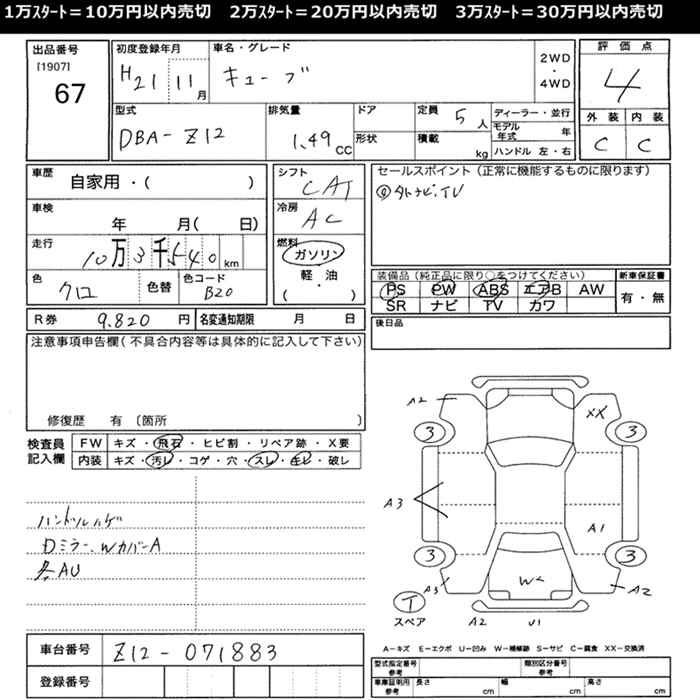 1万スタート=10万円以内売切 2万スタート=20万円以内売切 3万スタート=30万円以内売切
出品番号
[1907]
67
初度登録年月
H21 11月
車名・グレード
キューブ
2WD
・
4WD
評価点
4
外装 内装
C C
型式
DBA-Z12
排気量
1.49 CC
ドア
形状
定員 5人
積載 kg
ディーラー・並行
モデル年式 年
ハンドル 左・右
車歴
自家用・( )
車検
年 月( 日)
走行
10万3千540 km
色
クロ
色替
色コード
B20
シフト
CAT
冷房
AC
燃料
ガソリン
軽・油
( )
セールスポイント(正常に機能するものに限ります)
◎外ナビ.TV
装備品(純正品に限り○をつけてください)
PS PW ABS エアB AW
SR ナビ TV カワ
新車保証書
有・無
後日品
R券 9.820 円
名変通知期限 月 日
注意事項申告欄(不具合内容等は具体的に記入して下さい)
修復歴 有 〔箇所 )
検査員
記入欄
FW キズ・飛石・ヒビ割・リペア跡・X要
内装 キズ・汚レ・コゲ・穴・スレ・キレ・破レ
ハンドルハゲ
Dミラー、WカバーA
各AU
車台番号 Z12-071883
登録番号
A2 XX
3 3
A3 A1
3 3
A3 W< A2
T
スペア
A2 U1
A-キズ E-エクボ U-凹み W-補修跡 S-サビ C-腐食 XX-交換済
型式指定番号
参考
類別区分番号
参考
車庫証明用
参考
長さ cm 幅 cm 高さ cm